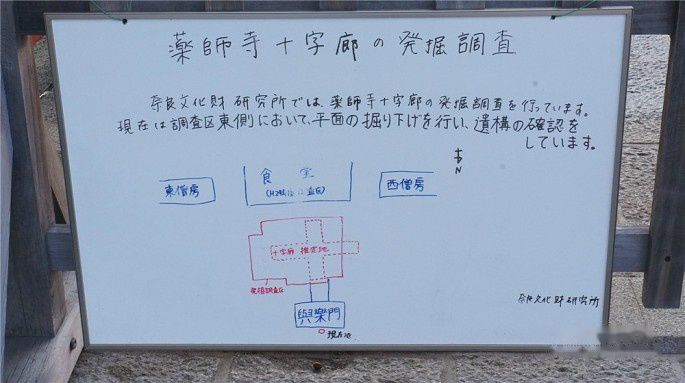 薬師寺十字廊の発掘調査
奈良文化財研究所では、薬師寺十字廊の発掘調査を行っています。
現在は調査区東側において、平面の掘り下げを行い、遺構の確認を
しています。
N
東僧房
食堂
西僧房
十字廊 推定地
発掘調査区
與樂門
現在地
奈良文化財研究所